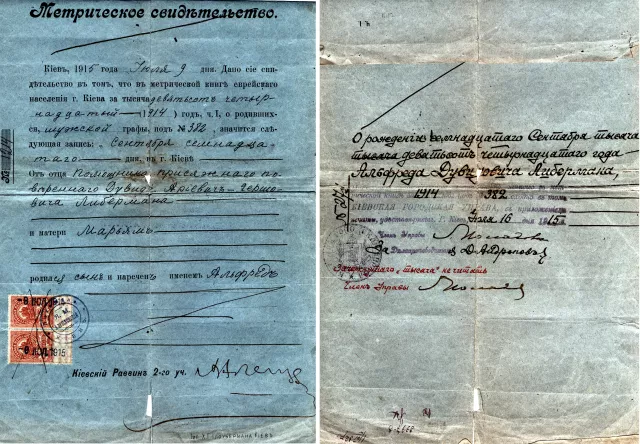 Метрическое свидѣтельство.
Кіевъ, 1915 года Іюля 9 дня. Дано сіе сви-
дѣтельство въ томъ, что въ метрической книгѣ еврейскаго
населенія г. Кіева за тысяча девятьсотъ четыр-
надцатый (1914) годъ, ч. I, о родивших-
ся, мужской графы, подъ № 382, значится слѣ-
дующая запись: Сентября семнадца-
таго дня, въ г. Кіевѣ
Отъ отца Помощника присяжнаго по-
вѣреннаго Дувида Аріевичъ-Герше-
вича Либермана
и матери Марьямъ
родился сынъ и нареченъ именемъ Альфредъ
-9 ІЮЛ. 1915
-9 ІЮЛ. 1915
Кіевскій Раввинъ 2-го уч.
О рожденіи семнадцатаго Сентября тысяча
тысяча девятьсотъ четырнадцатаго года
Альфреда Дувидовича Либермана,
1914 382
КІЕВСКАЯ ГОРОДСКАЯ
Г. Кіевъ, Іюля 16 дня 1915 г.
Членъ Управы
За
Зачеркнутаго „тысяча" не читать
Членъ Управы